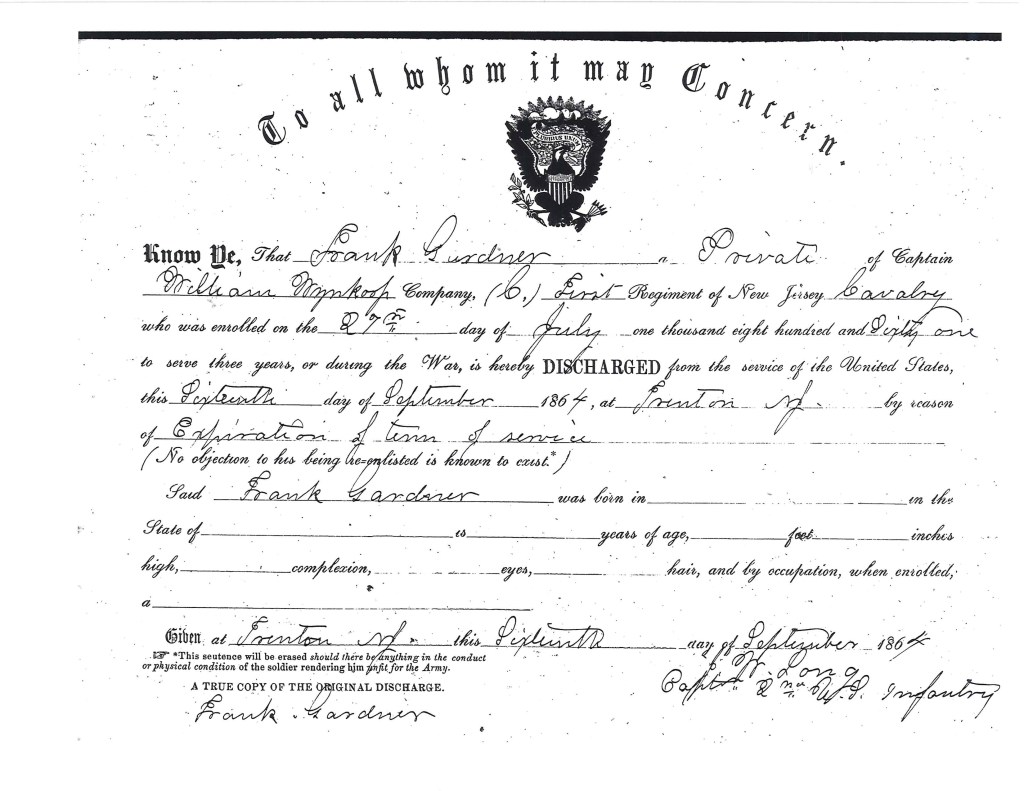 To all whom it may Concern.
PLURIBUS UNUM
Know Ye, That Frank Gardner a Private of Captain
William Wynkoop Company, (C.) First Regiment of New Jersey Cavalry
who was enrolled on the 27th day of July one thousand eight hundred and Sixty one
to serve three years, or during the War, is hereby DISCHARGED from the service of the United States,
this Sixteenth day of September 1864, at Trenton NJ. by reason
of Expiration of term of service
(No objection to his being re=enlisted is known to exist.*)
Said Frank Gardner was born in in the
State of is years of age, feet inches
high, complexion, eyes, hair, and by occupation, when enrolled,
a
Given at Trenton NJ. this Sixteenth day of September 1864
☞ *This sentence will be erased should there be anything in the conduct
or physical condition of the soldier rendering him unfit for the Army.
W. Long
Capt 2nd U.S. Infantry
A TRUE COPY OF THE ORIGINAL DISCHARGE.
Frank Gardner